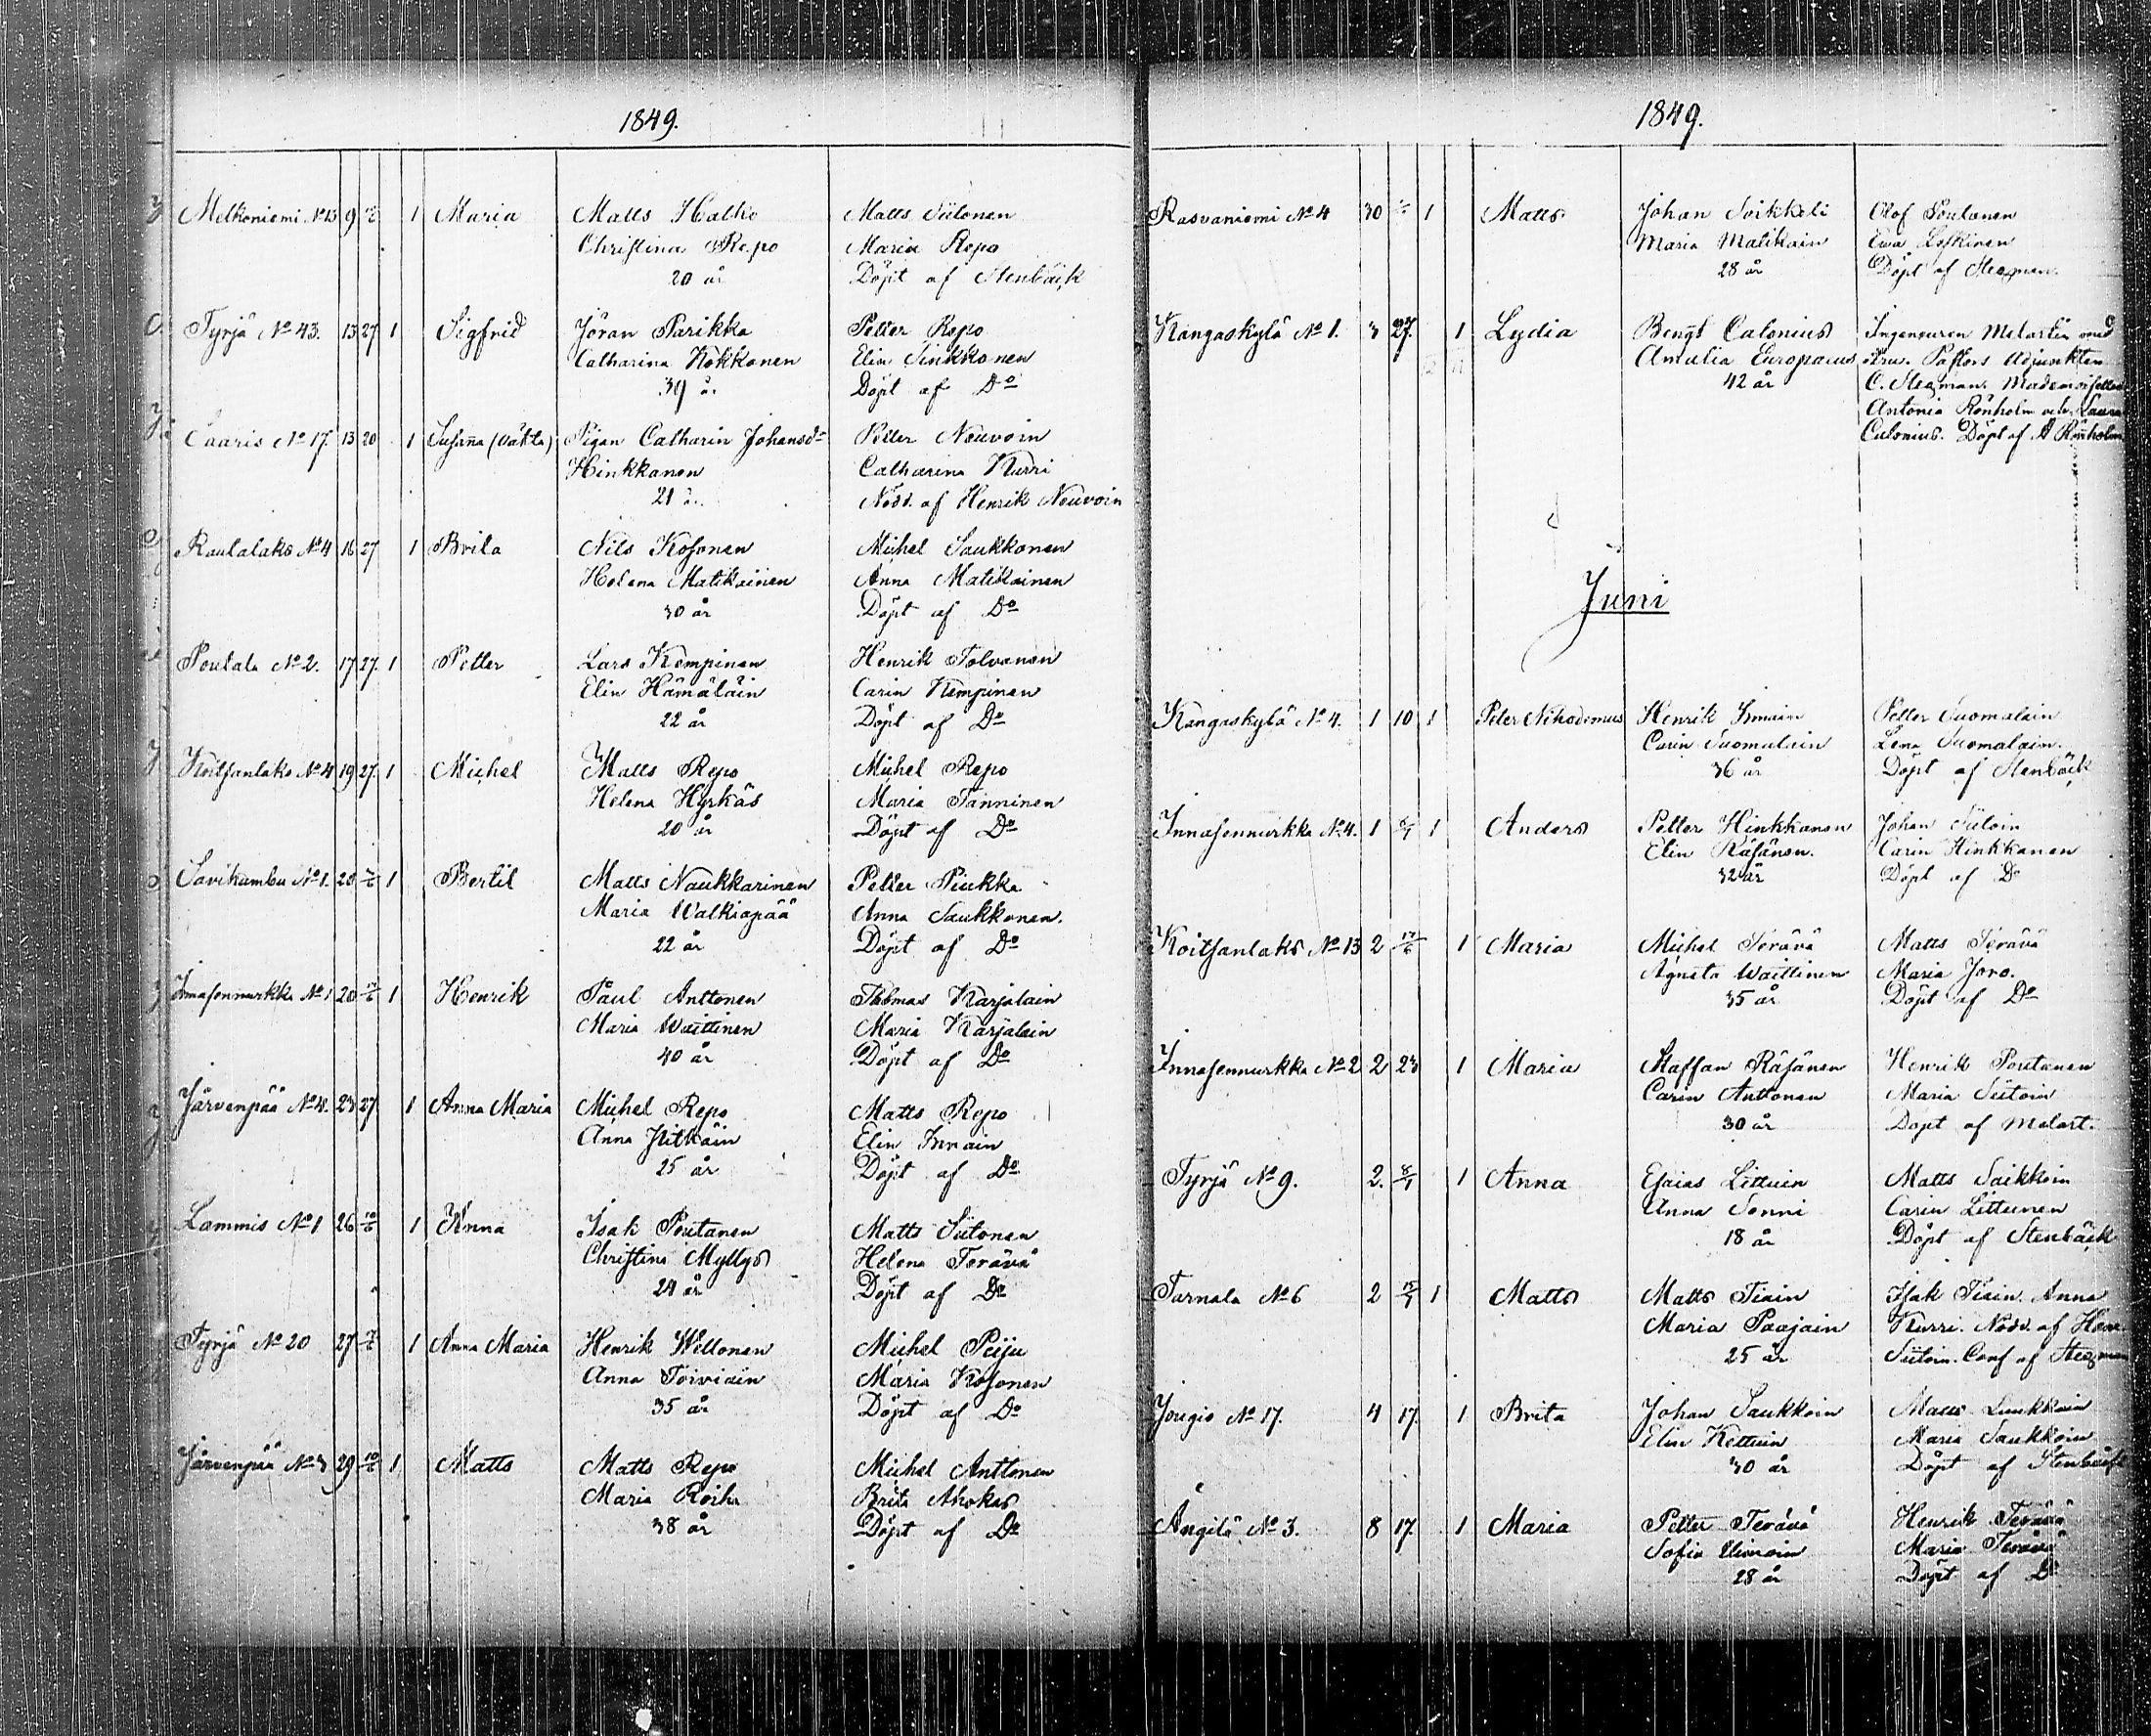 1849.
Melkoniemi No 13 9 1 Maria Matts Halko Matts Siitonen
Christina Repo Maria Repo
20 år Döpt af Stenbäck
Tyrjä No 43. 13 27 1 Sigfrid Jöran Parikka Petter Repo
Catharina Kokkonen Elin Sinkkonen
39 å. Döpt af Do
Saaris No 17. 13 20 1 Susana (oäkta) Pigan Catharin Johansdr Petter Nouvoin
Hinkkanen Catharina Kurri
21 å. Nödd. af Henrik Nouvoin
Rautalaks No 4 16 27 1 Brita Nils Kosonen Michel Saukkonen
Helena Matikainen Anna Matikainen
30 år Döpt af Do
Poutala No 2. 17 27. 1 Petter Lars Kempinen Henrik Tolvanen
Elin Hämäläin Carin Kempinen
22 år Döpt af Do
Koitsanlaks No 4 19 27. 1 Michel Matts Repo Michel Repo
Helena Hyrkäs Maria Tanninen
20 år Döpt af Do
Savikumbu No 1. 20 1 Bertil Matts Naukkarinen Petter Piukka
Maria Walkiapää Anna Saukkonen.
22 år Döpt af Do
Innasennurkka No 1 20 17/6 1 Henrik Paul Anttonen Thomas Karjalain
Maria Waittinen Maria Karjalain
40 år Döpt af Do
Järvenpää No 4. 23 27 1 Anna Maria Michel Repo Matts Repo
Anna Pitkäin Elin Innain
25 år Döpt af Do
Lammis No 1 26 10/6 1 Anna Isak Poutanen Matts Siitonen
Christina Myllys Helena Terävä
24 år Döpt af Do
Tyrjä No 20 27 1 Anna Maria Henrik Weltonen Michel Peiju
Anna Toiviain Maria Kosonen
35 år Döpt af Do
Järvenpää No 3 29 10/6 1 Matts Matts Repo Michel Anttonen
Maria Roiha Brita Ahokas
38 år Döpt af Do
1849.
Rasvaniemi No 4 30 1 Matts Johan Soikkeli Olof Poutanen
Maria Matikain Ewa Leskinen
28 år Döpt af Stegman.
Kangaskylä No 1. 3 27. 1 Lydia Bengt Calonius Ingeneuren Melartin med
Amalia Europaeus strus. Pastors Adjunkten
42 år C. Stegman. Mademoisellen
Antonia Rönholm och Laura
Calonius. Döpt af A Rönholm
Juni
Kangaskylä No 4. 1 10 1 Peter Nikodemus Henrik Immain Petter Suomalain
Carin Suomalain Lena Suomalain.
36 år Döpt af Stenbäck
Innasennurkka No 4. 1 1 Anders Petter Hinkkanen Johan Siitoin
Elin Räsänen. Carin Hinkkanen
32 år Döpt af Do
Koitsanlaks No 13 2 17/6 1 Maria Michel Terävä Matts Terävä
Agneta Waittinen Maria Joro.
35 år Döpt af Do
Innasennurkka No 2 2 23 1 Maria Staffan Räsänen Henrik Poutanen
Carin Anttonen Maria Siitoin
30 år Döpt af Melart.
Tyrjä No 9. 2. 8/7 1 Anna Esaias Littuin Matts Saikkoin
Anna Sonni Carin Littunen
18 år Döpt af Stenbäck
Tarnala No 6 2 15/7 1 Matts Matts Tiain Isak Tiain. Anna
Maria Paajain Kurri. Nödd. af Henr.
25 år Siitoin. Conf af Stegman
Jougio No 17. 4 17. 1 Brita Johan Saukkoin Matts Luukkain
Elin Kettuin Maria Saukkoin
30 år Döpt af Stenbäck
Ängilä No 3. 8 17. 1 Maria Petter Terävä Henrik Terävä
Sofia Maria Terävä
28 år Döpt af Do